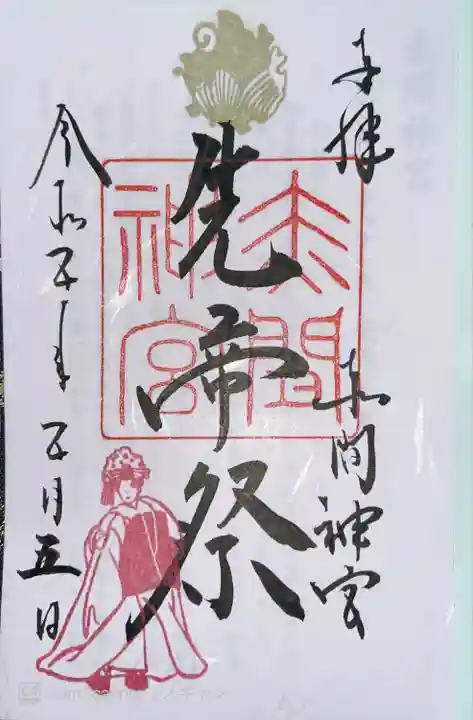 奉拝
赤間神宮
先帝祭
赤間神宮
令和五年五月五日